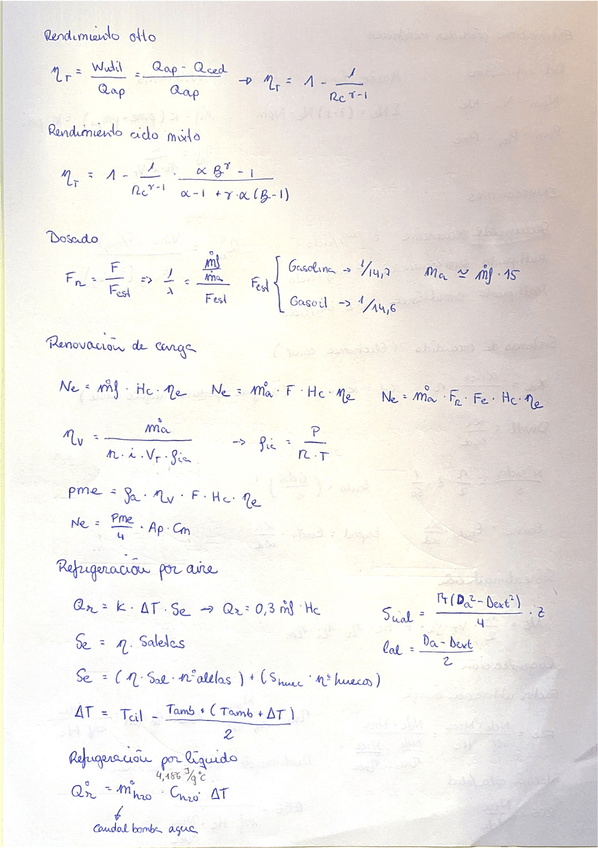 Rendimiento otto
η_T = Wutil / Qap = (Qap - Qced) / Qap → η_T = 1 - 1 / Rc^(γ-1)
Rendimiento ciclo mixto
η_T = 1 - 1 / Rc^(γ-1) · (α β^γ - 1) / (α - 1 + γ · α (β - 1))
Dosado
F_R = F / Fest => 1/λ = (ṁf / ṁa) / Fest   Fest { Gasolina → 1/14,7   ṁa ≃ ṁf · 15
Gasoil → 1/14,6
Renovación de carga
Ne = ṁf · Hc · ηe   Ne = ṁa · F · Hc · ηe   Ne = ṁa · F_R · Fe · Hc · ηe
η_V = ṁa / (n · i · V_T · ρia) → ρia = P / (R · T)
pme = ρa · ηv · F · Hc · ηe
Ne = Pme / 4 · Ap · Cm
Refrigeración por aire
Q_R = K · ΔT · Se → Q_R = 0,3 ṁf · Hc   Sual = π (Da² - Dext²) / 4 · 2
Se = η · Saletas   lal = (Da - Dext) / 2
Se = (η · Sal · nº aletas) + (Shuec · nº huecos)
ΔT = Tcil - (Tamb + (Tamb + ΔT)) / 2
Refrigeración por líquido
4,186 J/g°C
Q̇_R = ṁ_H2O · C_H2O · ΔT
caudal bomba agua